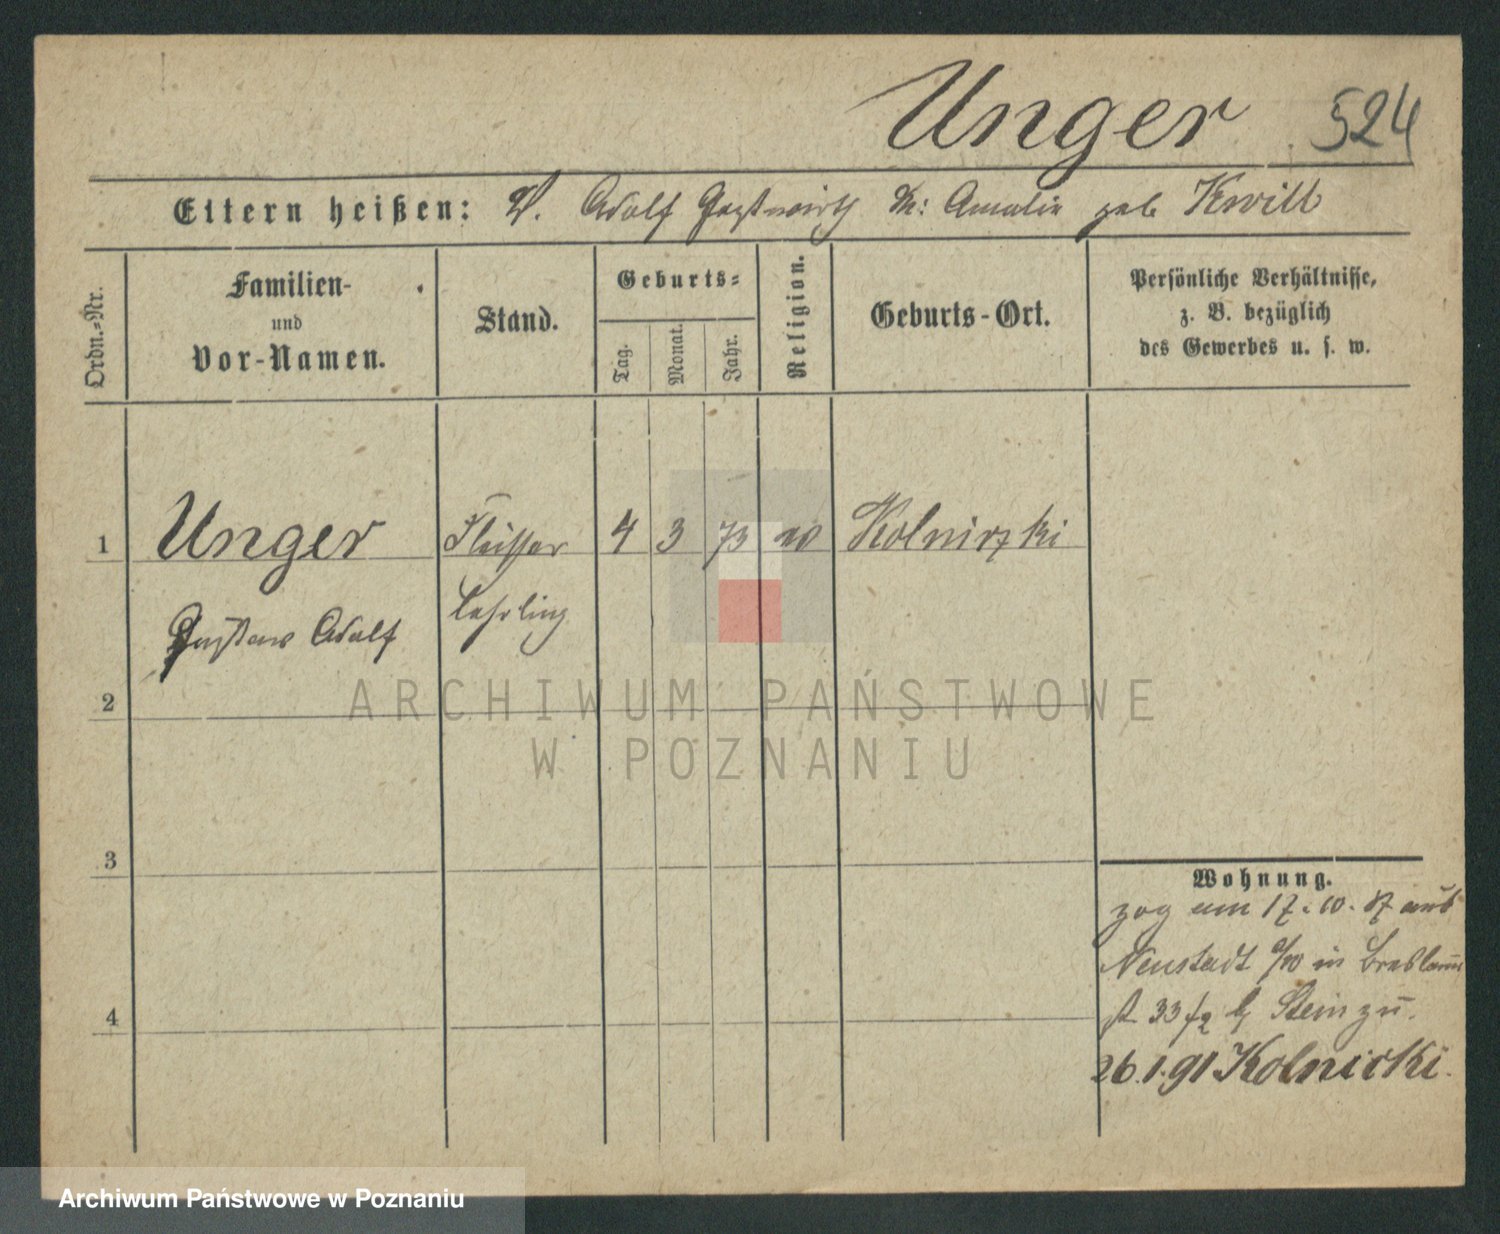 Unger 524
Eltern heißen: V. Adolf Gastwirth M: Amalie geb Kwill
Ordn.-Nr.
Familien-
und
Vor-Namen.
Stand.
Geburts-
Tag.
Monat.
Jahr.
Religion.
Geburts-Ort.
Persönliche Verhältnisse,
z. B. bezüglich
des Gewerbes u. s. w.
1 Unger Fleischer 4 3 73 Kolnirzki
Gustav Adolf Lehrling
2
3
4
Wohnung.
zog am 17.10.87 aus
Neustadt in Breslauer
st 33 b Stein zu.
26.1.91 Kolnirki.
ARCHIWUM PAŃSTWOWE
W POZNANIU
Archiwum Państwowe w Poznaniu